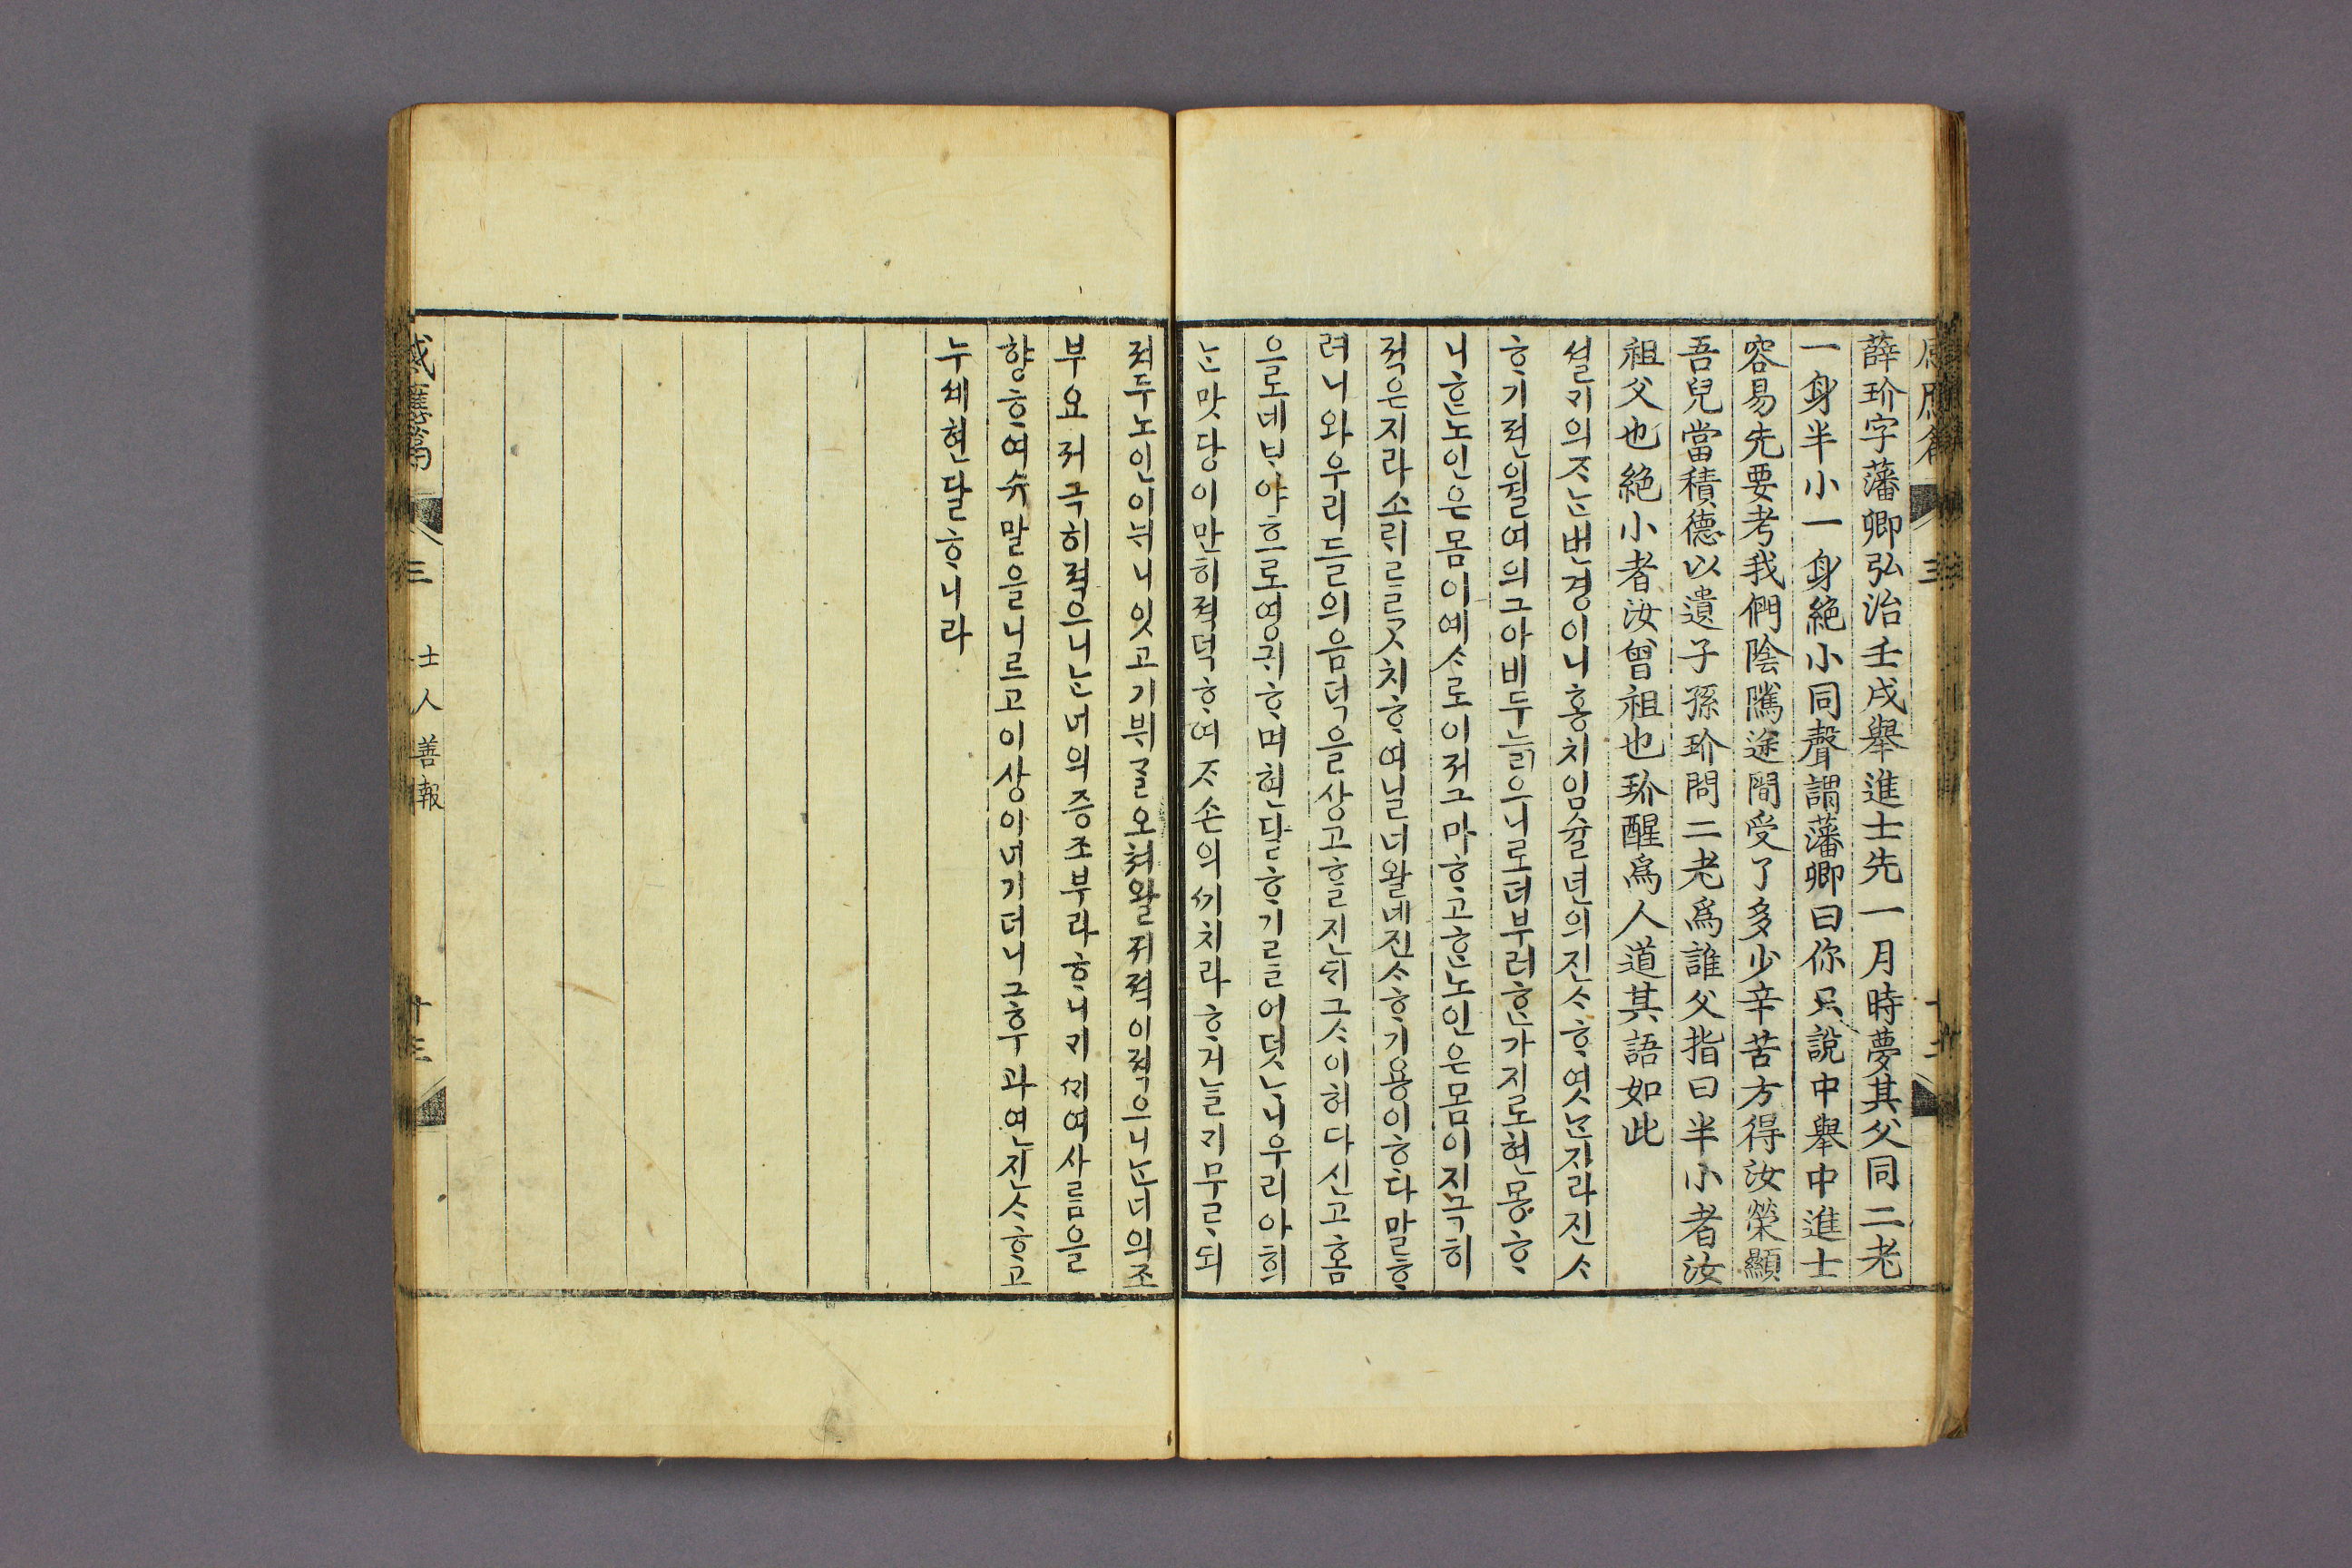 薛玠字藩卿弘治壬戌擧進士先一月時夢其父同二老
一身半小一身絶小同聲謂藩卿曰你只說中擧中進士
容易先要考我們陰騭途間受了多少辛苦方得汝榮顯
吾兒當積德以遺子孫玠問二老爲誰父指曰半小者汝
祖父也絶小者汝曾祖也玠醒爲人道其語如此
셜ᄀᆡ의ᄌᆞᄂᆞᆫ번경이니홍치임슐년의진ᄉᆞᄒᆞ엿ᄂᆞᆫ지라진ᄉᆞ
ᄒᆞ기젼월여의그아비두늙으니로더부러ᄒᆞᆫ가지로현몽ᄒᆞ
니ᄒᆞᆫ노인은몸이예ᄉᆞ로이져그마ᄒᆞ고ᄒᆞᆫ노인은몸이지극히
젹은지라소ᄅᆡᄅᆞᆯᄀᆞᆺ치ᄒᆞ여닐너왈네진ᄉᆞᄒᆞ기용이ᄒᆞ다말ᄒᆞ
려니와우리들의음덕을상고ᄒᆞᆯ진ᄃᆡ그ᄉᆞ이허다신고ᄒᆞᆷ
을도네ᄇᆞ야흐로영귀ᄒᆞ며현달ᄒᆞ기ᄅᆞᆯ어덧ᄂᆞ니우리아ᄒᆡ
ᄂᆞᆫ맛당이만히젹덕ᄒᆞ여ᄌᆞ손의ᄭᅵ치라ᄒᆞ거ᄂᆞᆯᄀᆡ무ᄅᆞᄃᆡ
져두노인이뉘니잇고기뷔ᄀᆞᆯ오쳐왈져젹이젹으니ᄂᆞᆫ너의조
부요져극히젹으니ᄂᆞᆫ너의증조부라ᄒᆞ니ᄀᆡᄭᆡ여사ᄅᆞᆷ을
향ᄒᆞ여슈말을니르고이상이녀기더니그후과연진ᄉᆞᄒᆞ고
누셰현달ᄒᆞ니라
感應篇
三
士人善報
十三